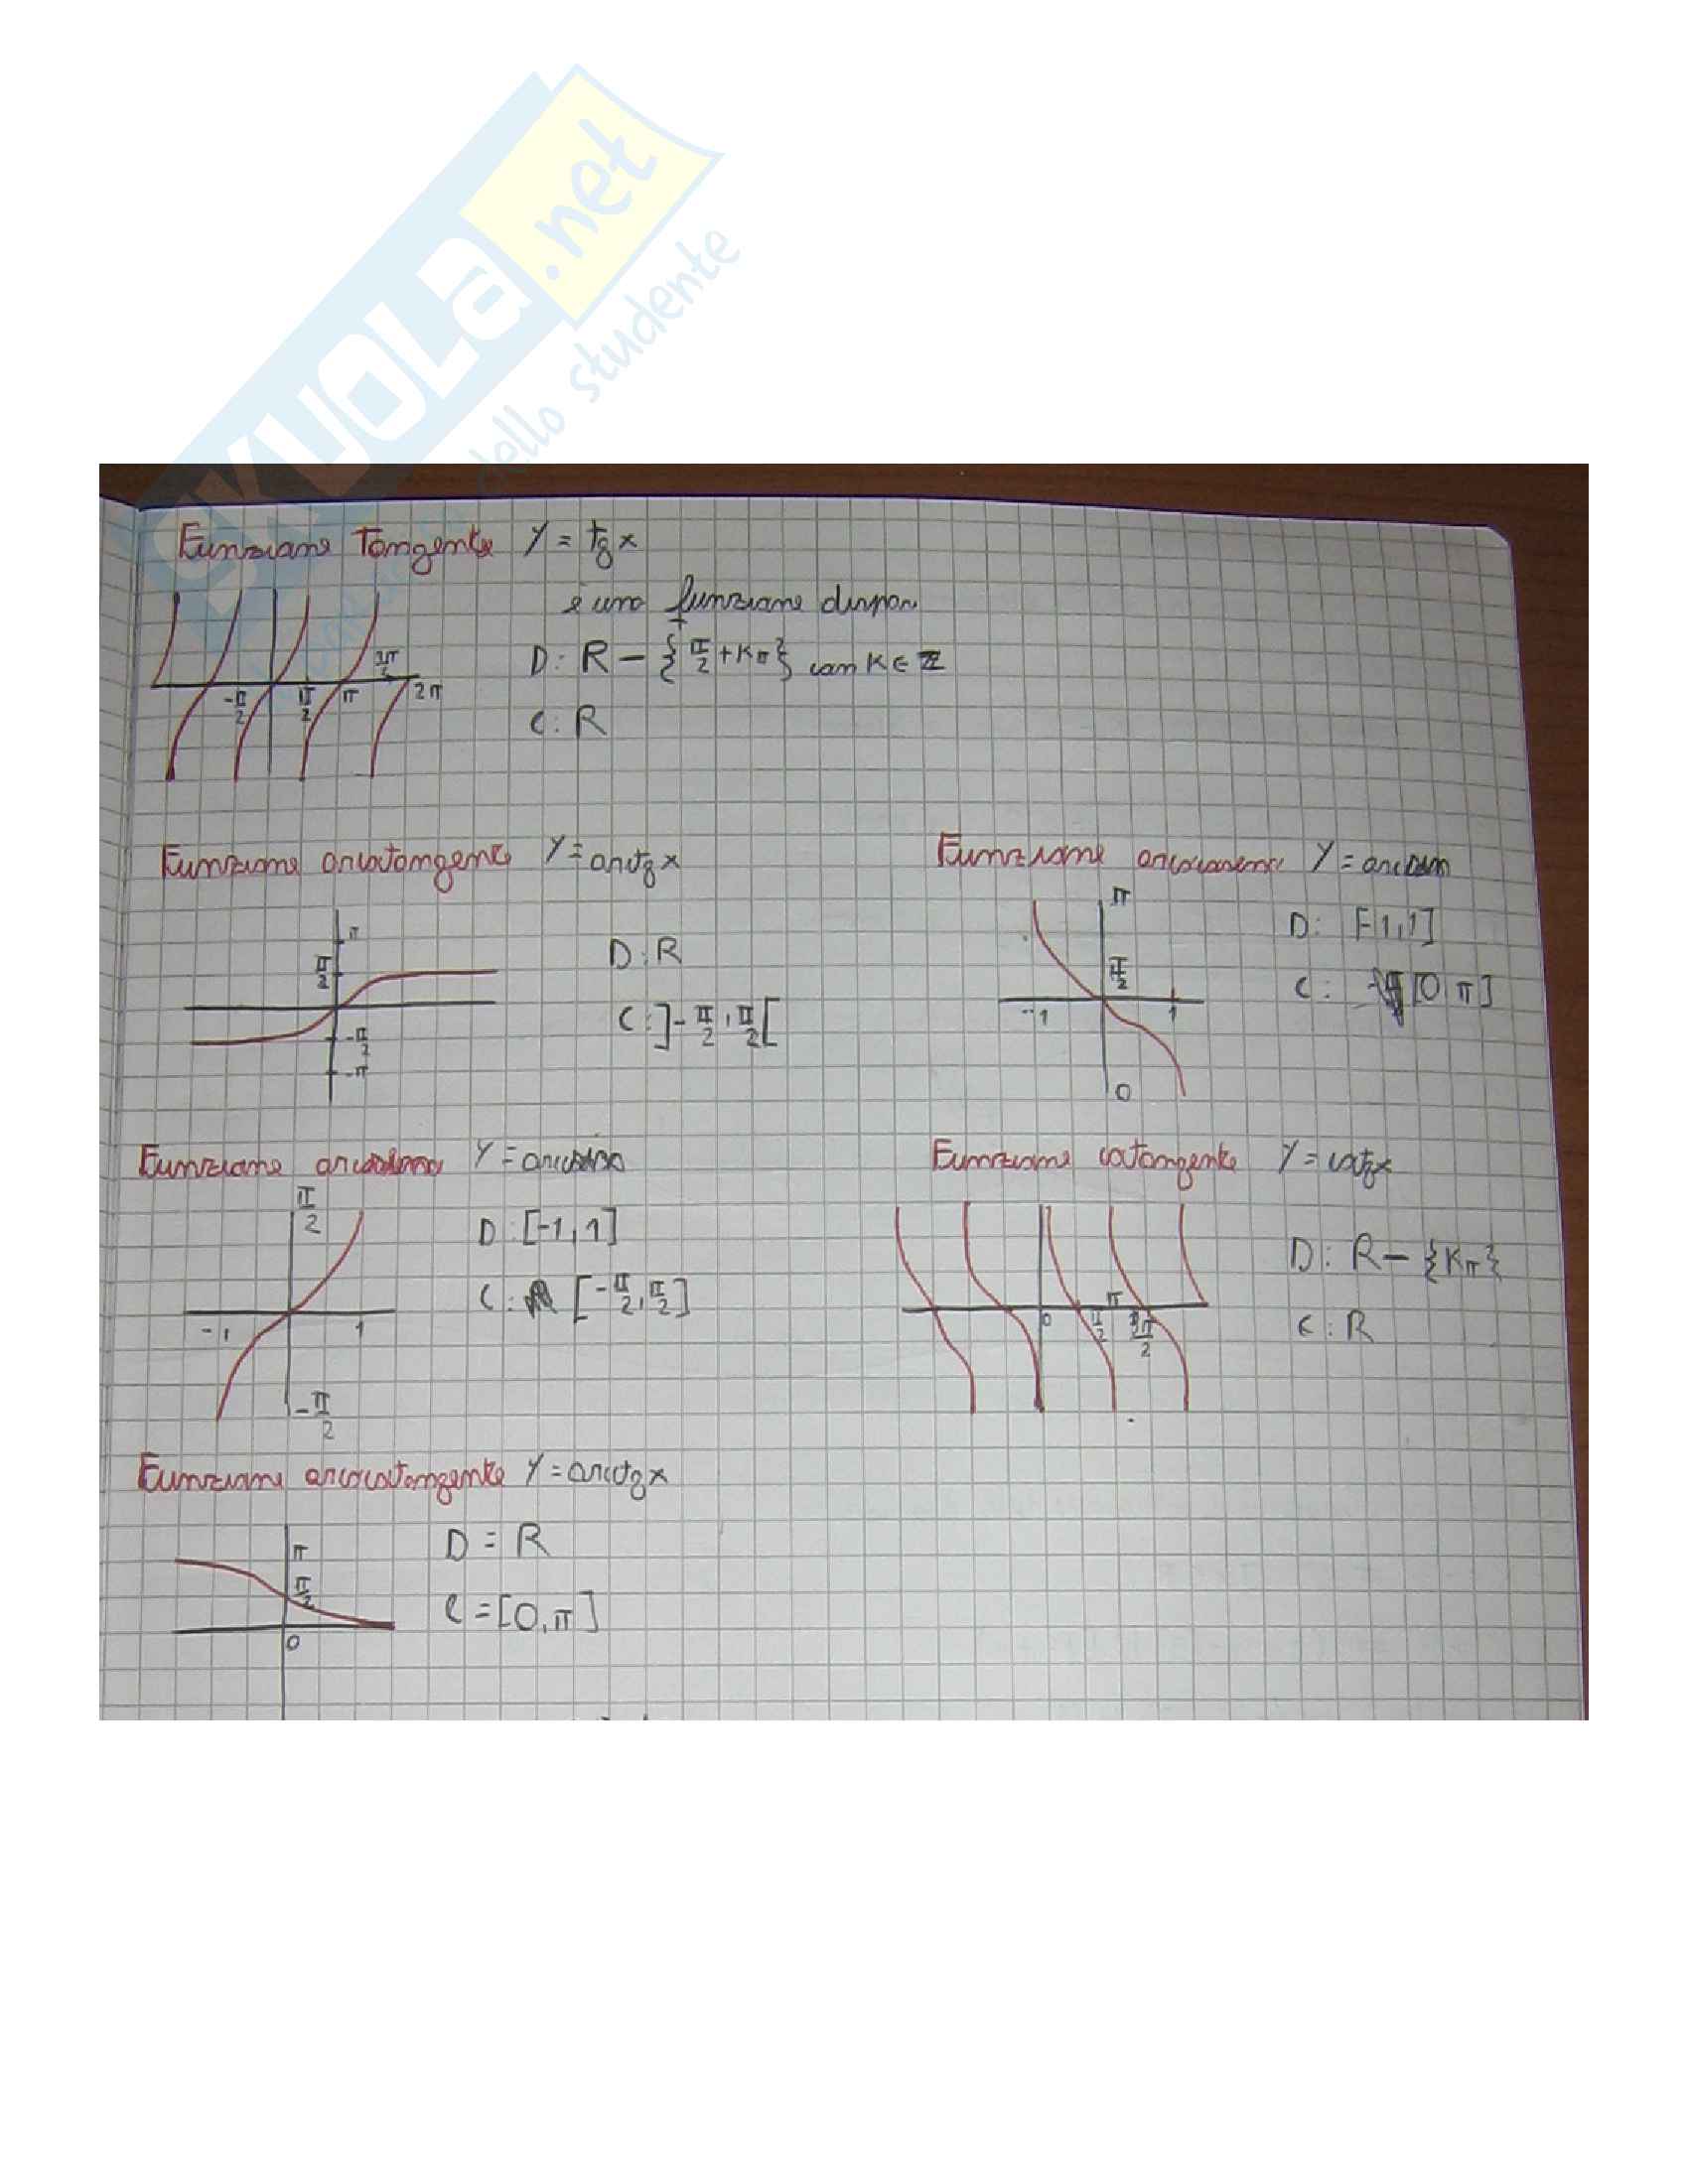 SKUOLA.net
dello studente
Funzione Tangente y = tg x
è una funzione dispari
D: R - { π/2 + Kπ } con K ∈ Z
C: R
-π/2 π/2 π 3π/2 2π
Funzione arcotangente y = arctg x
π
π/2
-π/2
-π
D: R
C: ]-π/2, π/2[
Funzione arcocoseno y = arccos
π
π/2
-1 1
0
D: [-1,1]
C: [0, π]
Funzione arcoseno y = arcsen
π/2
-1 1
-π/2
D: [-1,1]
C: [-π/2, π/2]
Funzione cotangente y = cotg x
0 π/2 π 3π/2
D: R - {Kπ}
C: R
Funzione arcocotangente y = arcctg x
π
π/2
0
D = R
C = [0, π]